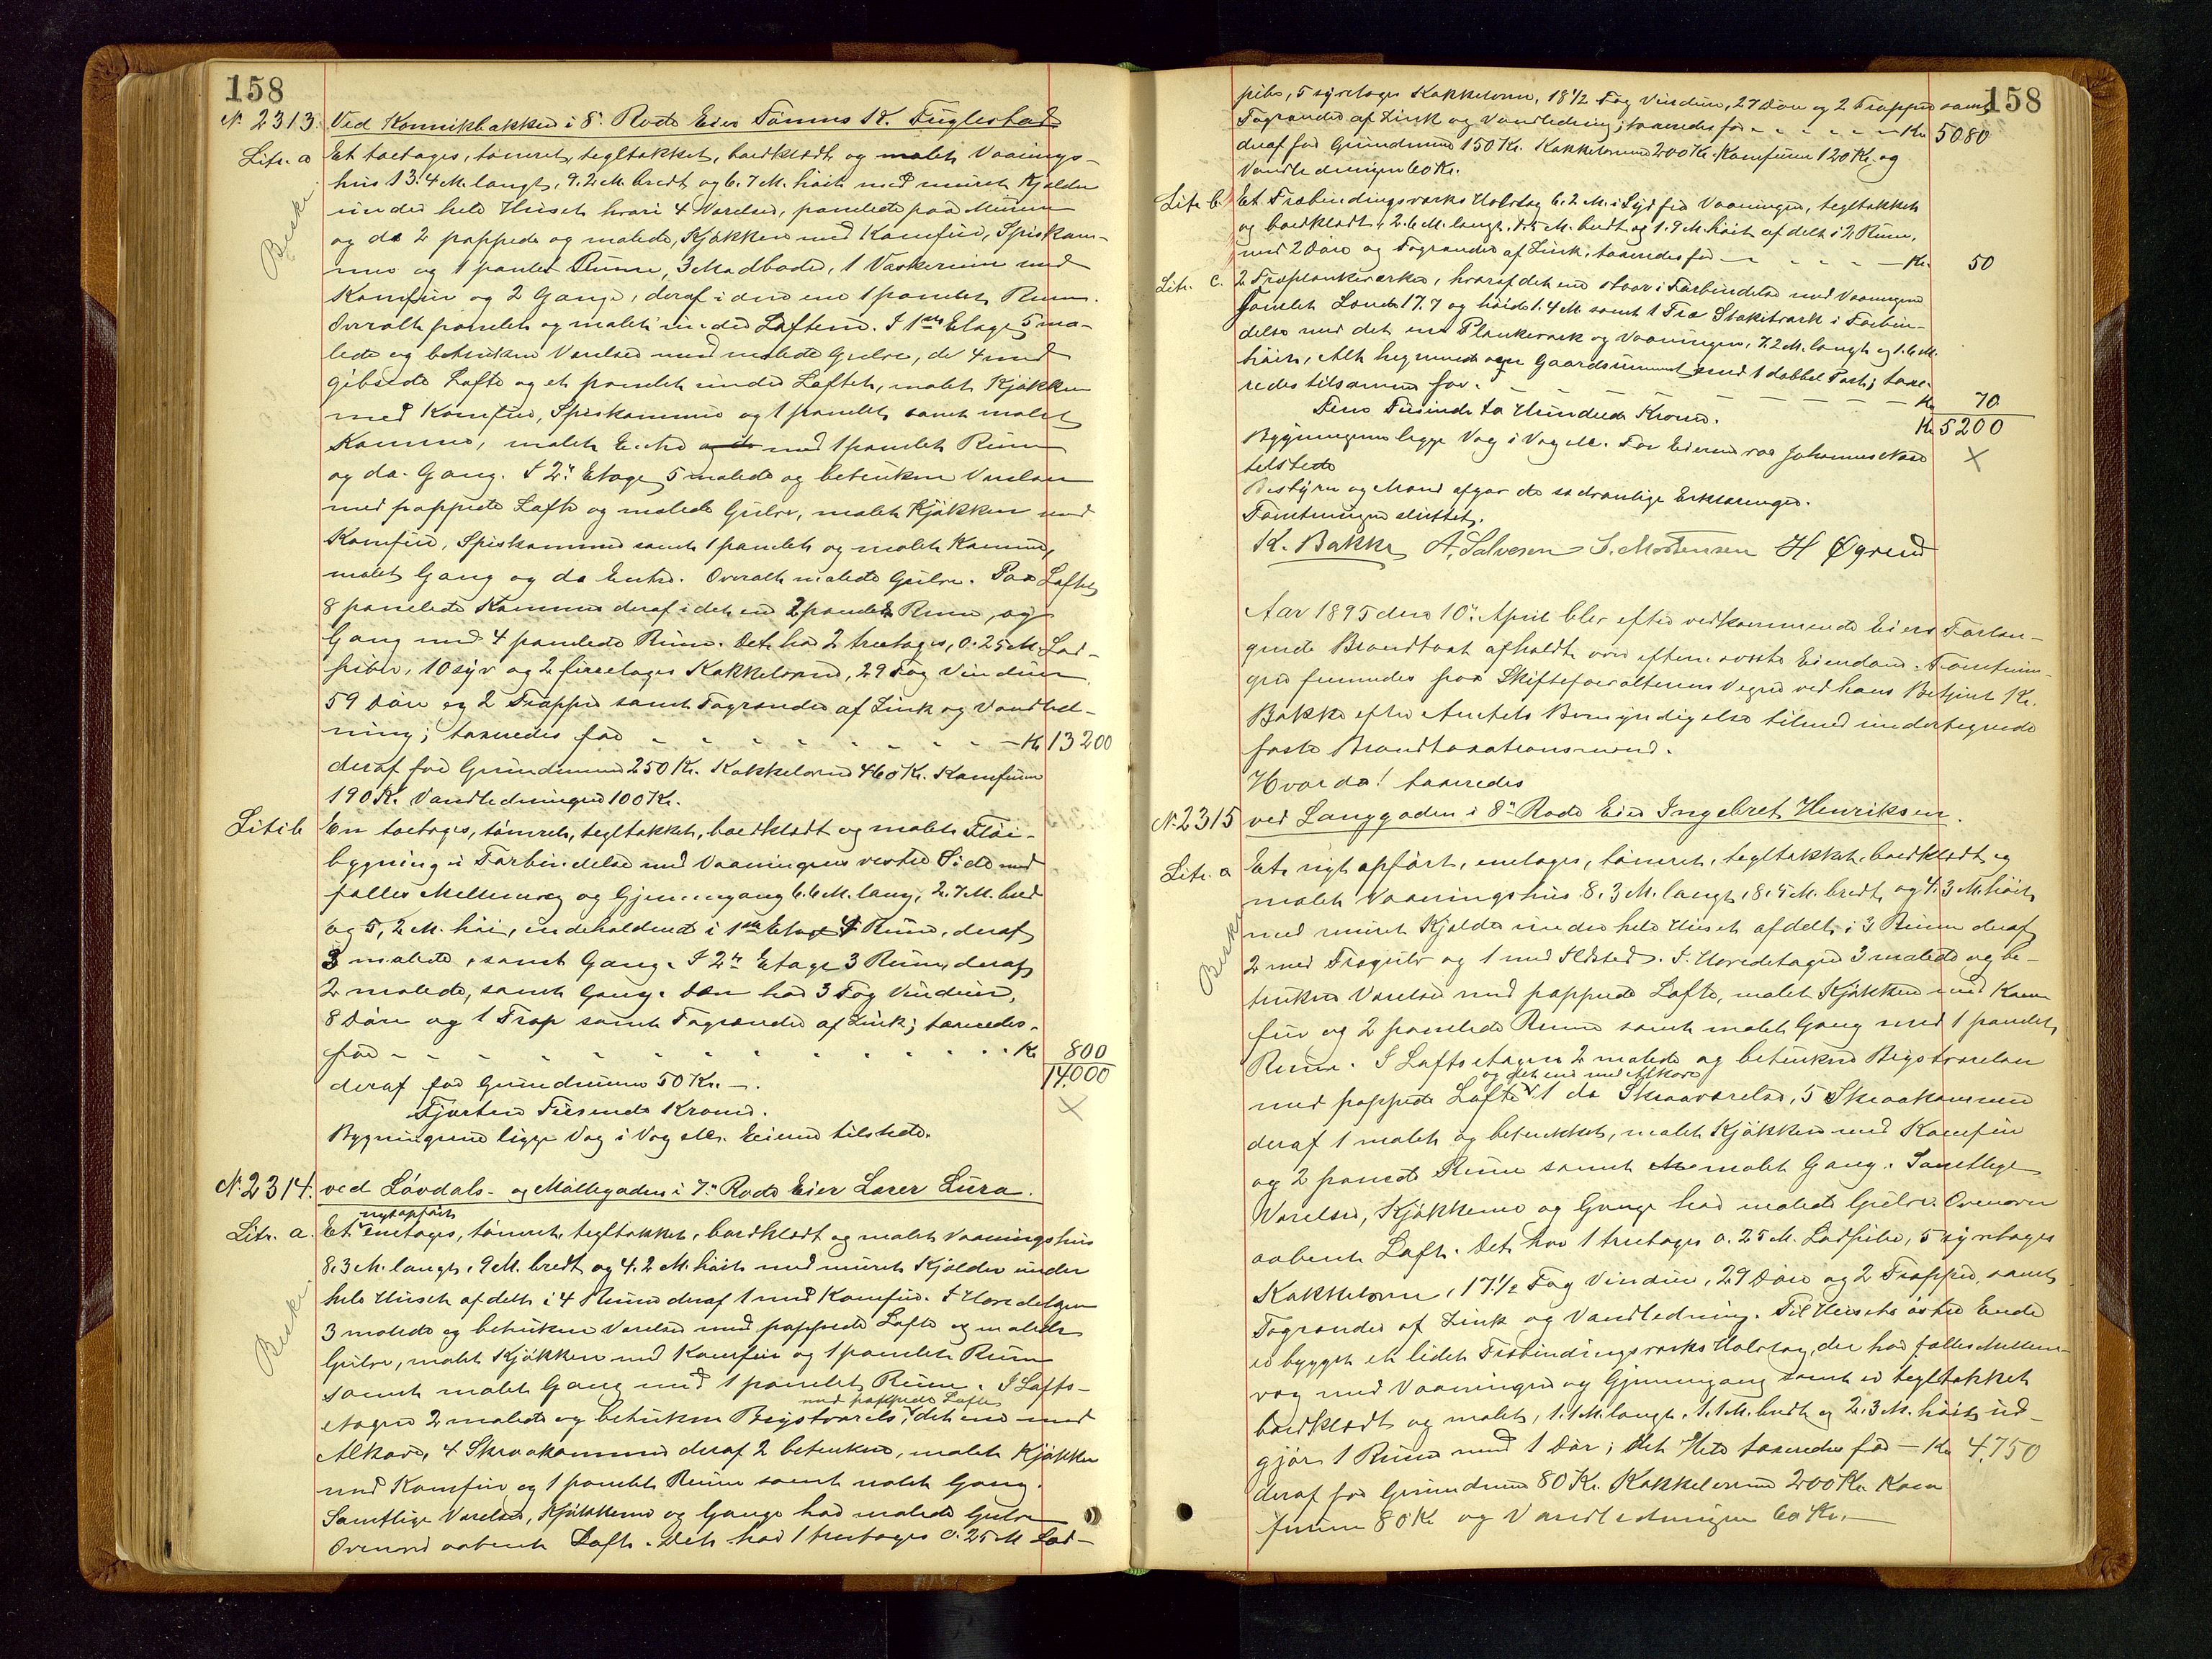 158
N. 2313. Ved Kannikbakken i 8de Rode Eier Tönnes K. Fuglestad
Litr. a Et toetages, tömret, tegltækket, bordklædt og malet Vaanings-
hus 13.4 M. langt, 9.2 M. bredt og 6.7 M. höit med muret Kjælder
under hele Huset hvori 4 Værelser, panelede paa Muren
og da 2 pappede og malede, Kjökken med Komfur, Spiskam-
mer og 1 panlet Rum, 3 Madboder, 1 Vaskerum med
Komfur og 2 Gange, deraf i den ene 1 panelet Rum.
Overalt panelet og malet under Loftene. I 1ste Etage 5 ma-
lede og betrukne Værelser med malede Gulve, de 4 med
gibsede Lofte og et panelet under Loftet, malet Kjökken
med Komfur, Spiskammer og 1 panelet samt malet
Kammer, malet Entre og da med 1 panelet Rum
og da. Gang. I 2den Etage 5 malede og betrukne Værelser
med pappede Lofte og malede Gulve, malet Kjökken med
Komfur, Spiskammer samt 1 panelet og malet Kammer,
malet Gang og da Entre. Overalt malede Gulve. Paa Loftet
8 panelede Kammer deraf i det ene 2 panelet Rum, og
Gang med 4 panelede Rum. Det har 2 treetages, 0.25 M. Lod-
piber, 10 syv og 2 fireetages Kakkelovne, 29 Fag Vinduer
59 Döre og 2 Trapper samt Tagrender af Zink og Vandled-
ning; taxeredes for - - - - - - Kr 13200
deraf for Grundmuren 250 Kr. Kakkelovne 460 Kr. Komfurene
190 Kr. Vandledningen 100 Kr.
Litr. b En toetages, tömret, tegltækket, bordklædt og malet Flöi-
bygning i Forbindelse med Vaaningens vestre Side med
fælles Mellemvæg og Gjennemgang 6.6 M. lang, 2.7 M. bred
og 5,2 M. höi, indeholdende i 1ste Etage 4 Rum, deraf
3 malede, samt Gang. I 2den Etage 3 Rum, deraf
2 malede, samt Gang. Den har 3 Fag Vinduer,
8 Döre og 1 Trap samt Tagrender af Zink; taxeredes
for - - - - - - - - Kr 800
deraf for Grundmuren 50 Kr. — 14,000
Fjorten Tusende Kroner. X
Bygningerne ligge Væg i Væg &c. Eieren tilstede.
N. 2314. ved Lövdals- og Möllegaden i 7de Rode Eier Lærer Lura.
nyt opfört
Litr. a. Et enetages, tömret, tegltækket, bordklædt og malet Vaaningshus
8.3 M. langt, 9 M. bredt og 4.2 M. höit med muret Kjælder under
hele Huset afdelt i 4 Rum deraf 1 med Komfur. I Hovedetagen
3 malede og betrukne Værelser med pappede Lofte og malede
Gulve, malet Kjökken med Komfur og 1 panelet Rum
samt malet Gang med 1 panelet Rum. I Lofts-
med pappede Lofte
etagen 2 malede og betrukne Bigstværels, det ene med
Alkove, 4 Skraakammer deraf 2 betrukne, malet Kjökken
med Komfur og 1 panelet Rum samt malet Gang.
Samtlige Værelser, Kjökkener og Gange har malede Gulve
Ovenover aabent Loft. Det har 1 treetages 0.25 M Lod-
Beskr.
Beskr.
158
pibe, 5 syvetages Kakkelovne, 18 1/2 Fag Vinduer, 27 Döre og 2 Trapper samt
Tagrender af Zink og Vandledning; taxeredes for - - - - - Kr 5080
deraf for Grundmuren 150 Kr. Kakkelovnene 200 Kr. Komfurene 120 Kr. og
Vandledningen 60 Kr.
Litr. b. Et Træbindingsværks Halvtag 6.2 M. i Syd for Vaaningen, tegltækket
og bordklædt, 2.6 M. langt, 1.5 M. bredt og 1.9 M. höit afdelt i 2 Rum,
med 2 Döre og Tagrender af Zink, taxeredes for - - - - Kr. 50
Litr. c. 2 Træplankeværker, hvoraf det ene staar i Forbindelse med Vaaningen
Samlet Længde 17.7 og höide 1.4 M. samt 1 Træ Stakitværk i Forbin-
delse med det ene Plankeværk og Vaaningen, 7.2 M. langt og 1.6 M.
höit, Alt begrænset eget Gaardsrummet med 1 dobbel Port; taxe-
redes tilsammen for - - - - - Kr 70
Fem Tusinde to Hundrede Kroner. Kr 5200
Bygningerne ligge Væg i Væg &c. For Eieren var Johannes Næse
tilstede X
Bestyrer og Mænd afgav de sædvanlige Erklæringer.
Forretningen sluttet.
K. Bakke A. Salvesen S. Mortensen H Øgreid
Aar 1895 den 10de April blev efter vedkommende Eiers Forlan-
gende Brandtaxt afholdt over efternævnte Eiendom. Forretnin-
gen fremmedes paa Skifteforvalterens Vegne ved hans Betjent K.
Bakke efter Amtets Bemyndigelse tilmed undertegnede
faste Brandtaxationsmænd.
Hvorda! taxeredes
N. 2315 ved Langgaden i 8de Rode Eier Ingebret Henriksen.
Litr. a Et nyt opfört, enetages, tömret, tegltækket, bordklædt og
malet Vaaningshus 8.3 M. langt, 8.5 M. bredt og 4.3 M. höit
med muret Kjælder under hele Huset afdelt i 3 Rum deraf
2 med Trægulv og 1 med Ildsted. I Hovedetagen 3 malede og be-
trukne Værelser med pappede Lofte, malet Kjökken med Kom-
fur og 2 panelede Rum samt malet Gang med 1 panelet
Rum. I Loftsetagen 2 malede og betrukne Bigstværelser
og det ene med Alkove
med pappede Lofte 1 da Skraaværelse, 5 Skraakammer
deraf 1 malet og betrukket, malet Kjökken med Komfur
og 2 panelede Rum samt malet Gang. Samtlige
Værelser, Kjökkener og Gange har malede Gulve. Ovenover
aabent Loft. Det har 1 treetages 0.25 M. Lodpibe, 5 syvetages
Kakkelovne, 17 1/2 Fag Vinduer, 29 Döre og 2 Trapper, samt
Tagrender af Zink og Vandledning. Til Husets östre Ende
er bygget et lidet Træbindingsværks Halvtag, der har fælles Mellem-
væg med Vaaningen og Gjennemgang samt er tegltækket
bordklædt og malet, 1.1 M. langt, 1.1 M. bredt og 2.3 M. höit, ud-
gjör 1 Rum med 1 Dör; Det Hele taxeredes for — Kr 4,750
deraf for Grundmuren 80 Kr. Kakkelovnene 200 Kr. Kom-
furene 80 Kr og Vandledningen 60 Kr. —
Beskr.